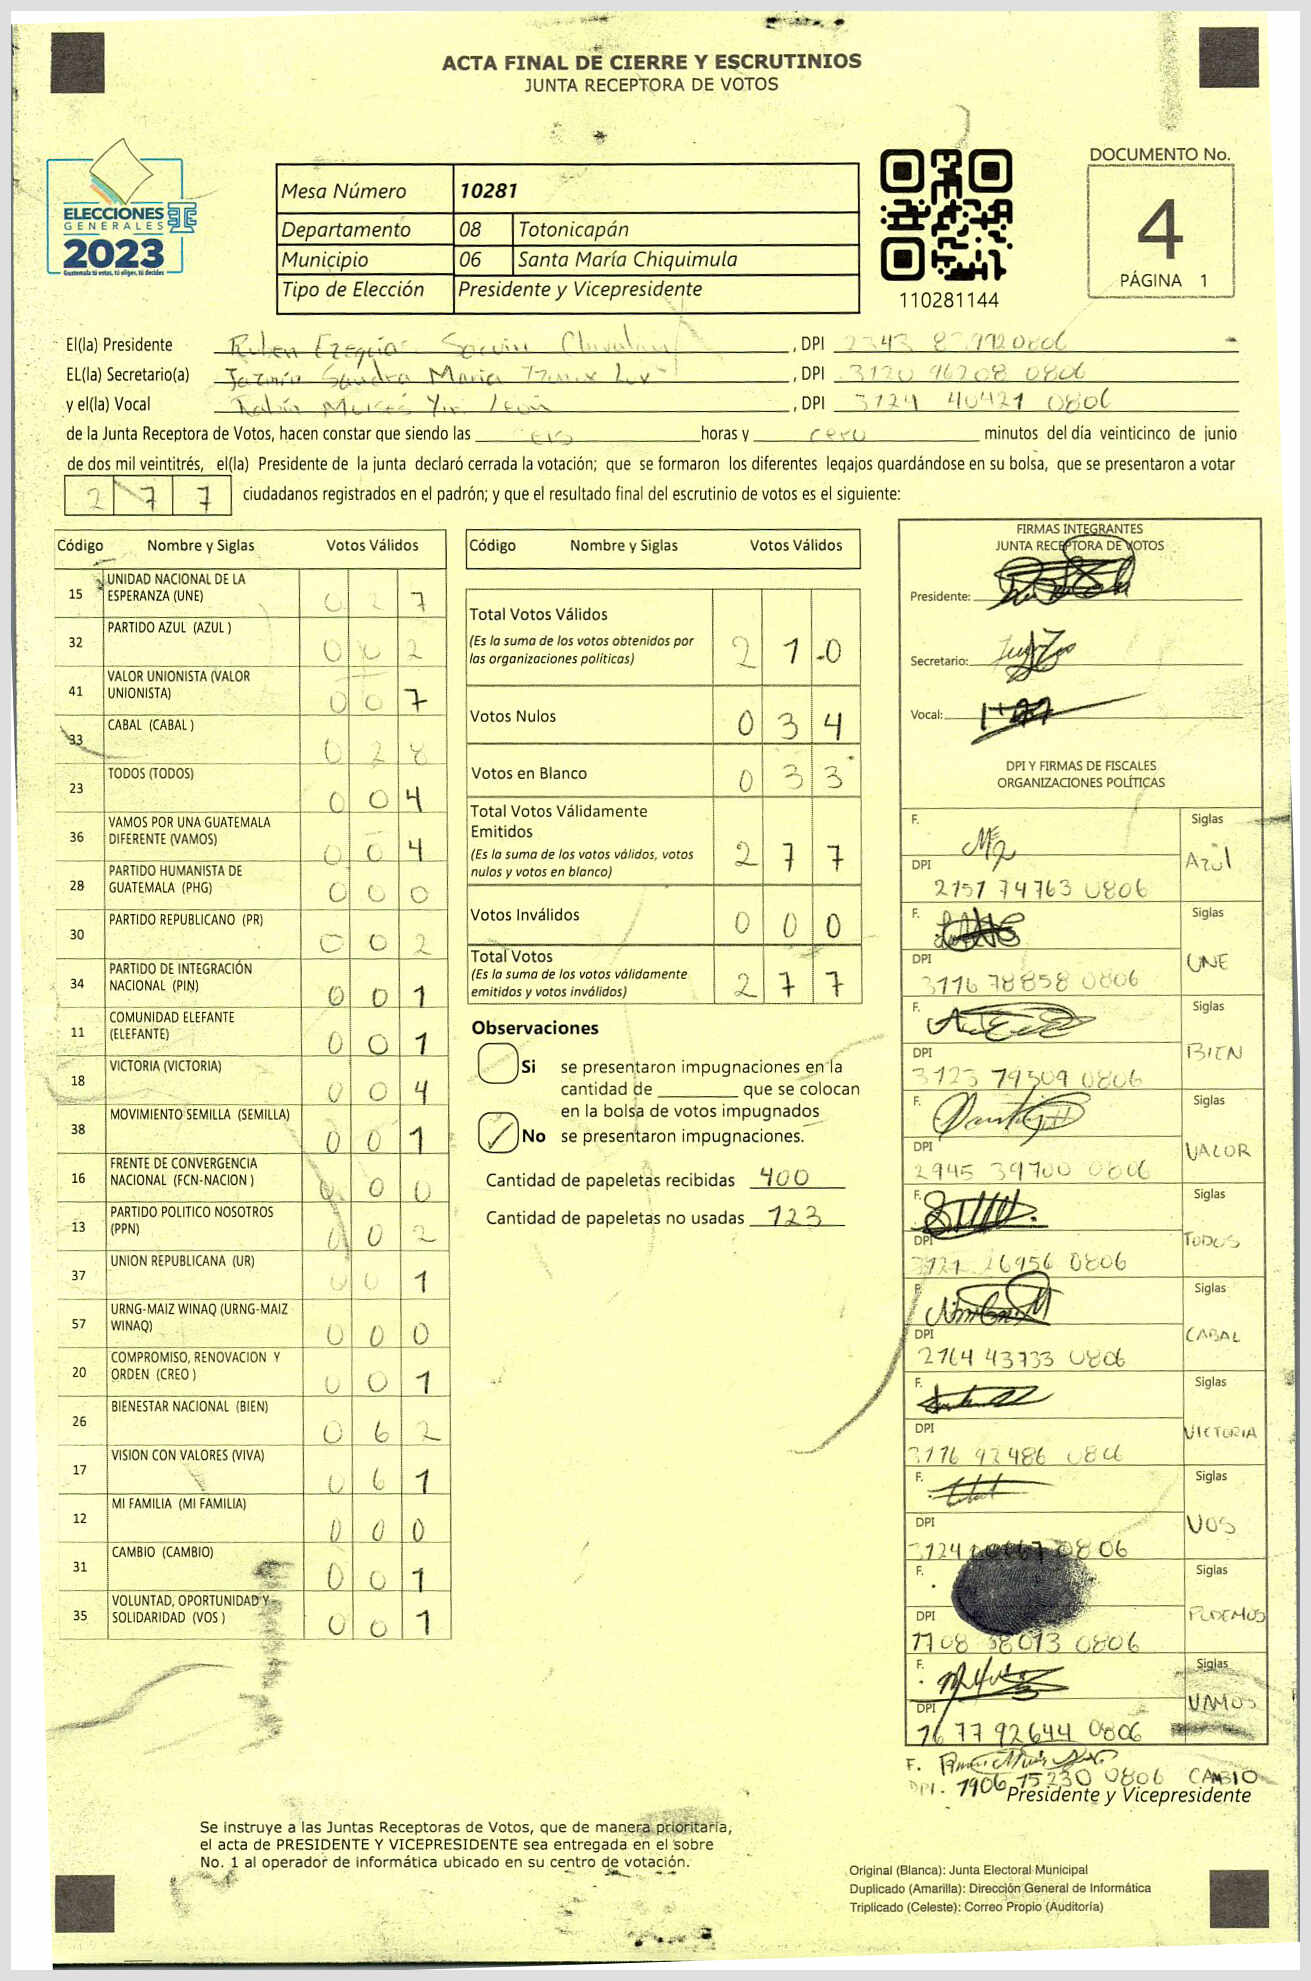 ACTA FINAL DE CIERRE Y ESCRUTINIOS
JUNTA RECEPTORA DE VOTOS
ELECCIONES
GENERALES
2023
Guatemala tú votas, tú eliges, tú decides
Mesa Número 10281
Departamento 08 Totonicapán
Municipio 06 Santa María Chiquimula
Tipo de Elección Presidente y Vicepresidente
110281144
DOCUMENTO No.
4
PÁGINA 1
El(la) Presidente Ruben , DPI
EL(la) Secretario(a) Jazmín Sandra Maria , DPI 3120 96208 0806
y el(la) Vocal León , DPI 3124 40421 0806
de la Junta Receptora de Votos, hacen constar que siendo las seis horas y cero minutos del día veinticinco de junio
de dos mil veintitrés, el(la) Presidente de la junta declaró cerrada la votación; que se formaron los diferentes legajos guardándose en su bolsa, que se presentaron a votar
277 ciudadanos registrados en el padrón; y que el resultado final del escrutinio de votos es el siguiente:
Código Nombre y Siglas Votos Válidos
15 UNIDAD NACIONAL DE LA ESPERANZA (UNE) 0 2 7
32 PARTIDO AZUL (AZUL ) 0 0 2
41 VALOR UNIONISTA (VALOR UNIONISTA) 0 0 7
33 CABAL (CABAL ) 0 2 8
23 TODOS (TODOS) 0 0 4
36 VAMOS POR UNA GUATEMALA DIFERENTE (VAMOS) 0 0 4
28 PARTIDO HUMANISTA DE GUATEMALA (PHG) 0 0 0
30 PARTIDO REPUBLICANO (PR) 0 0 2
34 PARTIDO DE INTEGRACIÓN NACIONAL (PIN) 0 0 1
11 COMUNIDAD ELEFANTE (ELEFANTE) 0 0 1
18 VICTORIA (VICTORIA) 0 0 4
38 MOVIMIENTO SEMILLA (SEMILLA) 0 0 1
16 FRENTE DE CONVERGENCIA NACIONAL (FCN-NACION ) 0 0 0
13 PARTIDO POLITICO NOSOTROS (PPN) 0 0 2
37 UNION REPUBLICANA (UR) 0 0 1
57 URNG-MAIZ WINAQ (URNG-MAIZ WINAQ) 0 0 0
20 COMPROMISO, RENOVACION Y ORDEN (CREO ) 0 0 1
26 BIENESTAR NACIONAL (BIEN) 0 6 2
17 VISION CON VALORES (VIVA) 0 6 1
12 MI FAMILIA (MI FAMILIA) 0 0 0
31 CAMBIO (CAMBIO) 0 0 1
35 VOLUNTAD, OPORTUNIDAD Y SOLIDARIDAD (VOS ) 0 0 1
Código Nombre y Siglas Votos Válidos
Total Votos Válidos 2 1 0
(Es la suma de los votos obtenidos por
las organizaciones políticas)
Votos Nulos 0 3 4
Votos en Blanco 0 3 3
Total Votos Válidamente
Emitidos 2 7 7
(Es la suma de los votos válidos, votos
nulos y votos en blanco)
Votos Inválidos 0 0 0
Total Votos 2 7 7
(Es la suma de los votos válidamente
emitidos y votos inválidos)
Observaciones
Si se presentaron impugnaciones en la
cantidad de ________ que se colocan
en la bolsa de votos impugnados
No se presentaron impugnaciones.
Cantidad de papeletas recibidas 400
Cantidad de papeletas no usadas 123
FIRMAS INTEGRANTES
JUNTA RECEPTORA DE VOTOS
Presidente:
Secretario:
Vocal:
DPI Y FIRMAS DE FISCALES
ORGANIZACIONES POLÍTICAS
F. Siglas
AZUL
DPI
2151 74763 0806
F. Siglas
UNE
DPI
3116 78858 0806
F. Siglas
BIEN
DPI
3123 79509 0806
F. Siglas
VALOR
DPI
2945 39700 0806
F. Siglas
TODOS
DPI
3121 26956 0806
F. Siglas
CABAL
DPI
2164 43733 0806
F. Siglas
VICTORIA
DPI
3116 92486 0806
F. Siglas
VOS
DPI
3124 0806
F. Siglas
PODEMOS
DPI
1708 0806
F. Siglas
VAMOS
DPI
1677 92644 0806
F.
DPI. 1906 15230 0806 CAMBIO
Presidente y Vicepresidente
Se instruye a las Juntas Receptoras de Votos, que de manera prioritaria,
el acta de PRESIDENTE Y VICEPRESIDENTE sea entregada en el sobre
No. 1 al operador de informática ubicado en su centro de votación.
Original (Blanca): Junta Electoral Municipal
Duplicado (Amarilla): Dirección General de Informática
Triplicado (Celeste): Correo Propio (Auditoría)